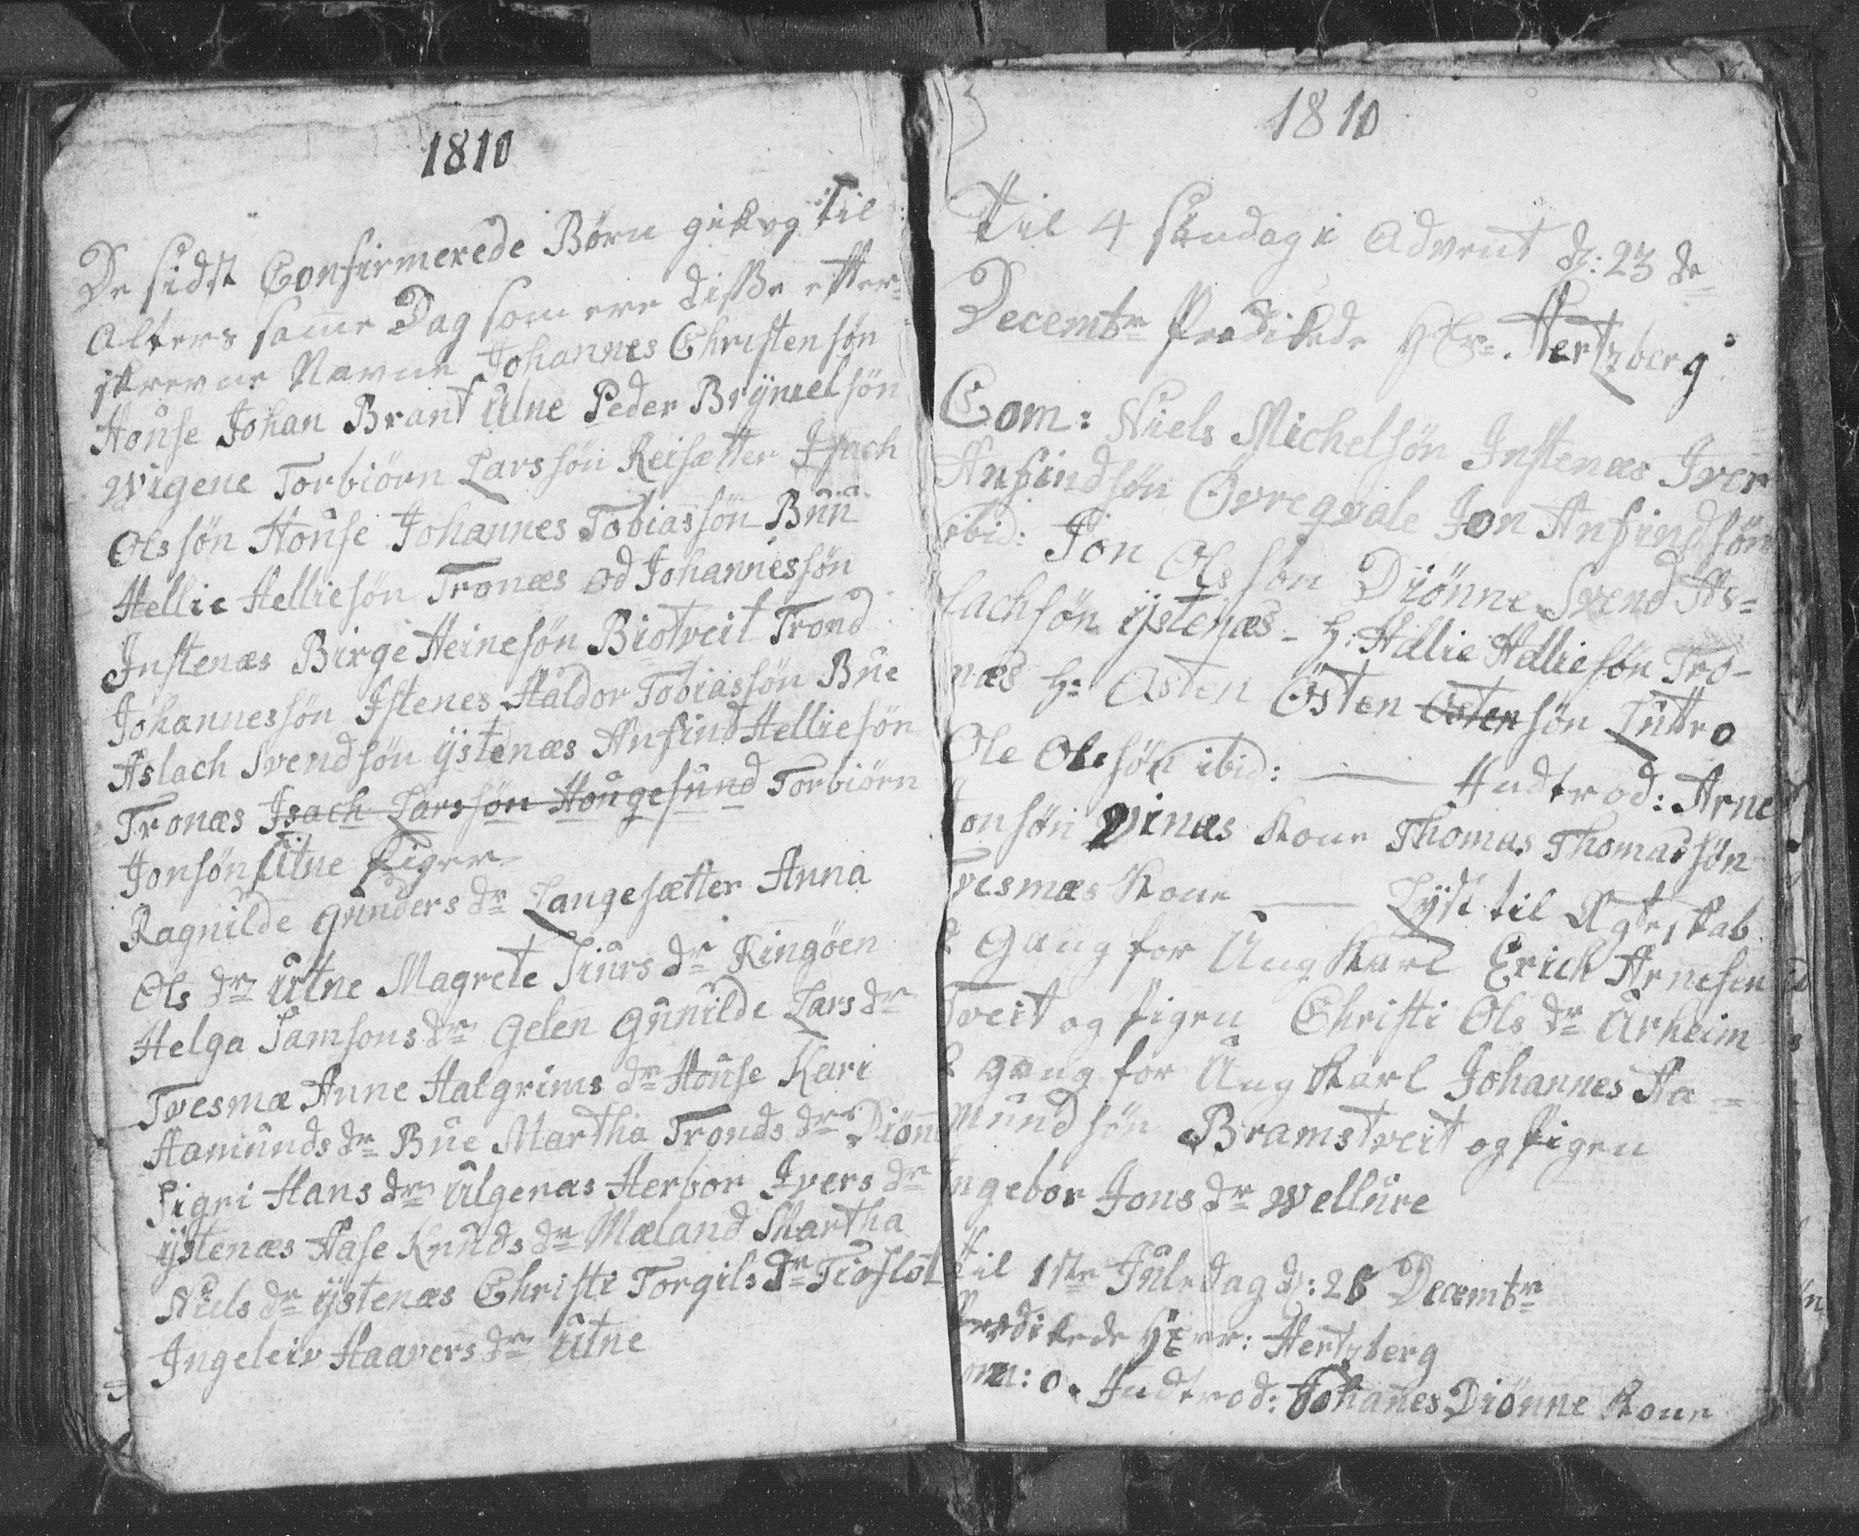 1810
De sidst Confirmerede Børn gik og til
Alters samme Dag som ere disse efter-
skrevne Navne Johannes Christensøn
House Johan Brant Utne Peder Brÿnielsøn
Wigene Torbiørn Larssøn Reisætter Isach
Olssøn House Johannes Tobiassøn Buu
Hellie Helliesøn Tronæs Od Johannessøn
Instenæs Birge Heinesøn Biotveit Trond
Johannessøn Istenes Haldor Tobiassøn Bue
Aslach Svendsøn ÿstenæs Anfind Helliesøn
Tronæs Isach Larssøn Hougesund Torbiørn
Jonsøn Utne Piger
Ragnilde Gunders dr Langesætter Anna
Ols dr Utne Magrete Siurs dr Ringøen
Helga Samsons dr Gelen Gunilde Lars dr
Tvesmæ Anne Halgrims dr House Kari
Aamunds dr Bue Martha Tronds dr Diønn
Sigri Hans dr Ulgenæs Herbor Ivers dr
ÿstenæs Aase Knuds dr Mæland Martha
Niels dr ÿstenæs Christi Torgils dr Tioflot
Ingeleiv Haavers dr Utne
1810
Til 4 Sindag i Advent d: 23 de
Decembr Predikede HEr. Hertzberg
Com: Niels Michelsøn Instenæs Iver
Anfindsøn Øvreqvale Jon Anfindsøn
ibid: Jon Olssøn Diønne Svend As=
lachsøn ÿstenæs - H: Hellie Helliesøn Tro-
næs H: Østen Østen Østensøn Luttro
Ole Olessøn ibid: — Indtrod: Arne
Jonsøn Vines Kone Thomas Thomassøn
Tvesmæs Kone — Lyst til Ægteskab
2 Gang for Ung Karl Erich Arnesen
Tveit og Pigen Christi Ols dr Urheim
2 gang for Ung Karl Johannes Aa=
mundsøn Bramstveit og Pigen
Ingebor Jons dr Wellure
Til 1ste Juledag d: 25 Decembr
Predikede HErr: Hertzberg
om: 0. Indtrod: Johannes Diønne Kone